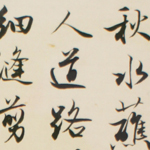 秋水蘸
人道路
細縫剪